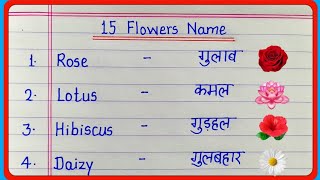 15 Flowers Name
1. Rose - गुलाब
2. Lotus - कमल
3. Hibiscus - गुड़हल
4. Daizy - गुलबहार